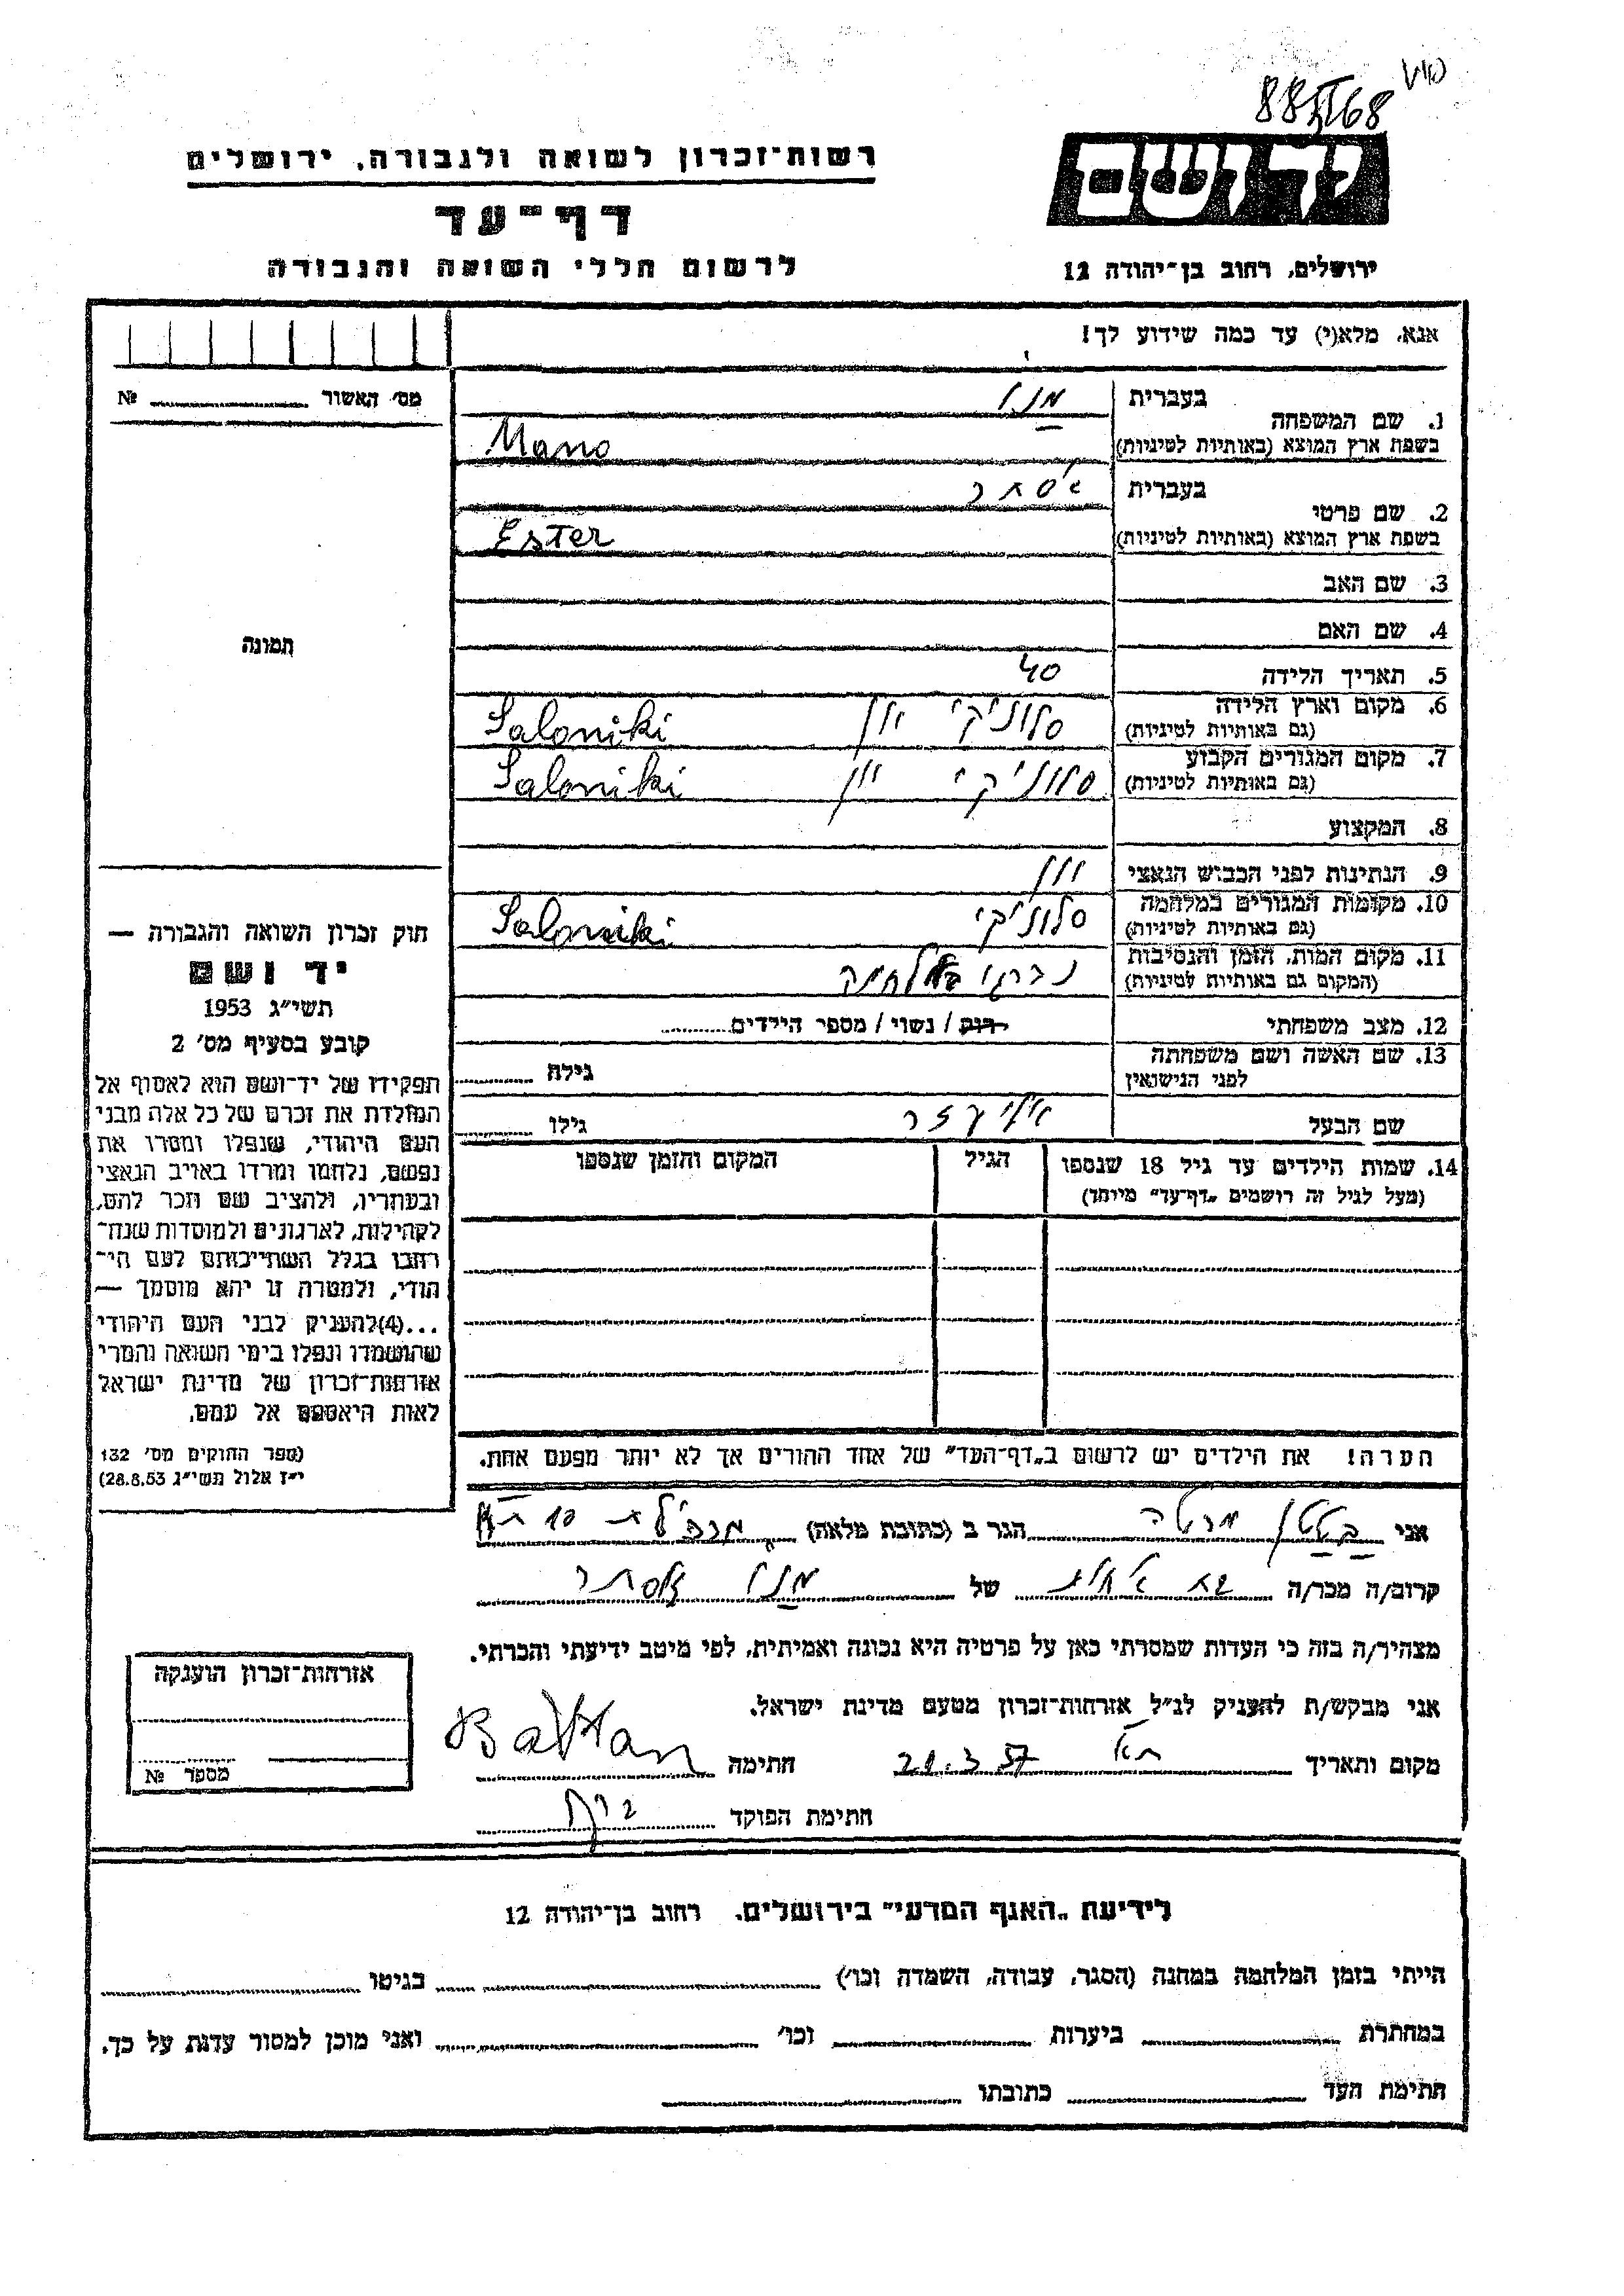 885/68
רשות־זכרון לשואה ולגבורה, ירושלים
דף־עד
לרשום חללי השואה והגבורה
יד ושם
ירושלים, רחוב בן־יהודה 12
אנא, מלא(י) עד כמה שידוע לך!
מס' האשור № 
1. שם המשפחה
בעברית מנו
בשפת ארץ המוצא (באותיות לטיניות) Mano
2. שם פרטי
בעברית אסתר
בשפת ארץ המוצא (באותיות לטיניות) Ester
3. שם האב
4. שם האם
5. תאריך הלידה 40
6. מקום וארץ הלידה סלוניקי יון Saloniki
(גם באותיות לטיניות)
7. מקום המגורים הקבוע סלוניקי יון Saloniki
(גם באותיות לטיניות)
8. המקצוע
9. הנתינות לפני הכבוש הנאצי יון
10. מקומות המגורים במלחמה סלוניקי Saloniki
(גם באותיות לטיניות)
11. מקום המות, הזמן והנסיבות
(המקום גם באותיות לטיניות)
12. מצב משפחתי רוק / נשוי / מספר הילדים
13. שם האשה ושם משפחתה
לפני הנישואין גילה
שם הבעל אליעזר גילו
14. שמות הילדים עד גיל 18 שנספו
(מעל לגיל זה רושמים „דף־עד" מיוחד)
הגיל
המקום והזמן שנספו
הערה! את הילדים יש לרשום ב„דף־העד" של אחד ההורים אך לא יותר מפעם אחת.
תמונה
חוק זכרון השואה והגבורה —
יד ושם
תשי"ג 1953
קובע בסעיף מס' 2
תפקידו של יד־ושם הוא לאסוף אל
המולדת את זכרם של כל אלה מבני
העם היהודי, שנפלו ומסרו את
נפשם, נלחמו ומרדו באויב הנאצי
ובעוזריו, ולהציב שם וזכר להם,
לקהילות, לארגונים ולמוסדות שנח־
רבו בגלל השתייכותם לעם הי־
הודי, ולמטרה זו יהא מוסמך —
...(4)להעניק לבני העם היהודי
שהושמדו ונפלו בימי השואה והמרי
אזרחות־זכרון של מדינת ישראל
לאות היאספם אל עמם.
(ספר החוקים מס' 132
י"ז אלול תשי"ג 28.8.53)
אני בטטן מרטה הגר ב (כתובת מלאה) 10 ת"א
קרוב/ה מכר/ה של מנו אסתר
מצהיר/ה בזה כי העדות שמסרתי כאן על פרטיה היא נכונה ואמיתית, לפי מיטב ידיעתי והכרתי.
אני מבקש/ת להעניק לנ"ל אזרחות־זכרון מטעם מדינת ישראל.
מקום ותאריך ת"א 21.3.57 חתימה Battan
חתימת הפוקד
אזרחות־זכרון הוענקה
מספר №
לידיעת „האגף המדעי" בירושלים, רחוב בן־יהודה 12
הייתי בזמן המלחמה במחנה (הסגר, עבודה, השמדה וכו') בגיטו
במחתרת ביערות וכו' ואני מוכן למסור עדות על כך.
חתימת העד כתובתו